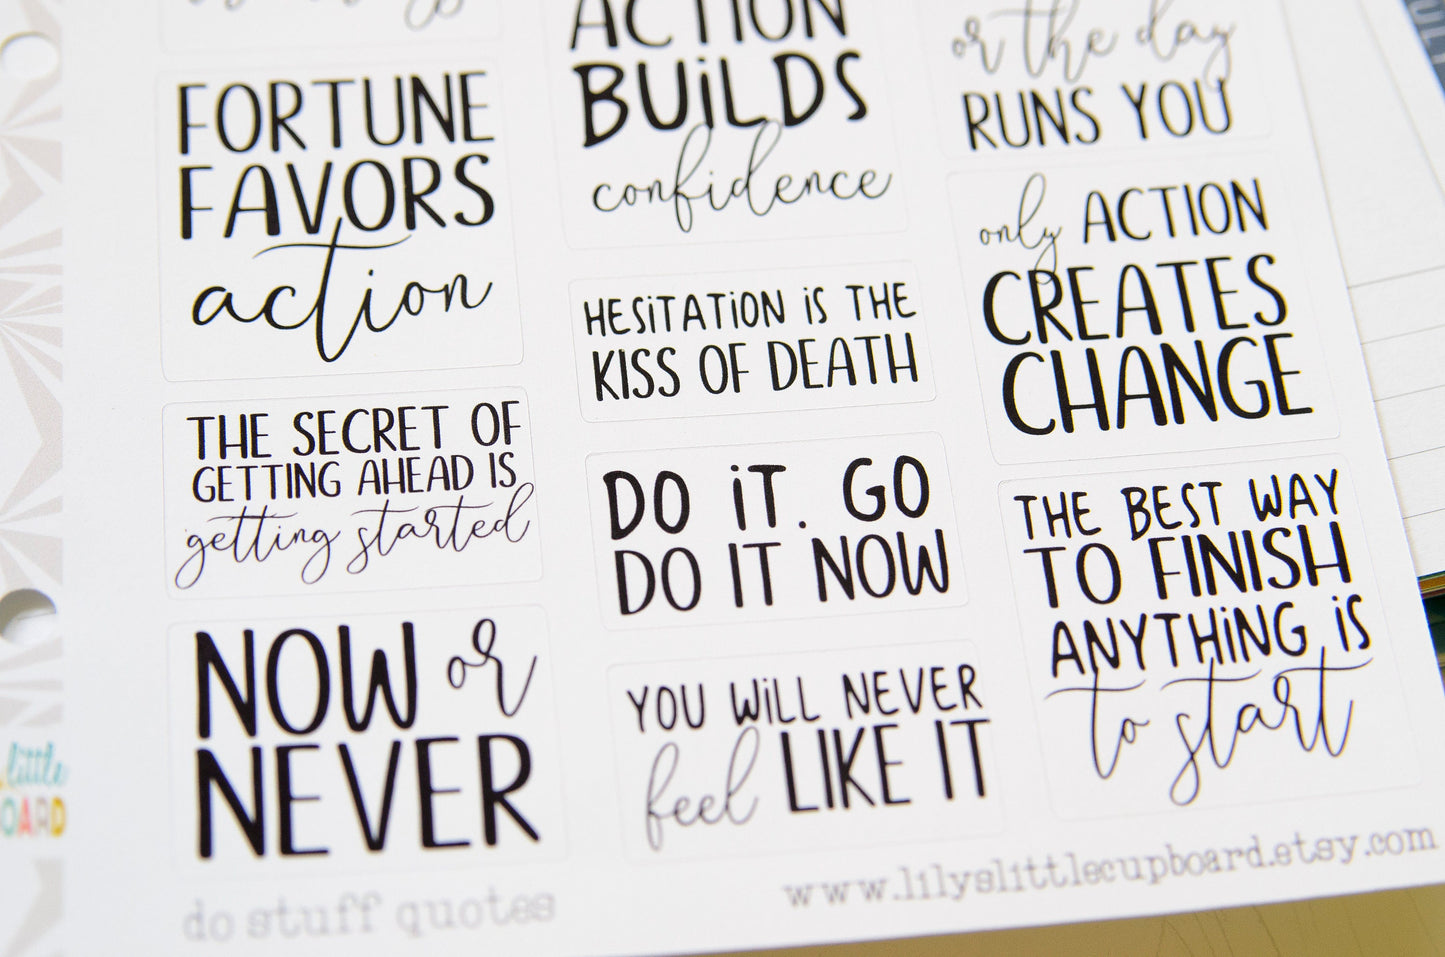 FORTUNE
FAVORS
action
THE SECRET OF
GETTING AHEAD IS
getting started
NOW or
NEVER
ACTION
BUILDS
confidence
HESITATION IS THE
KISS OF DEATH
DO IT. GO
DO IT NOW
YOU WILL NEVER
feel LIKE IT
or the day
RUNS YOU
only ACTION
CREATES
CHANGE
THE BEST WAY
TO FINISH
ANYTHING IS
to start
little
do stuff quotes
www.lilyslittlecupboard.etsy.com